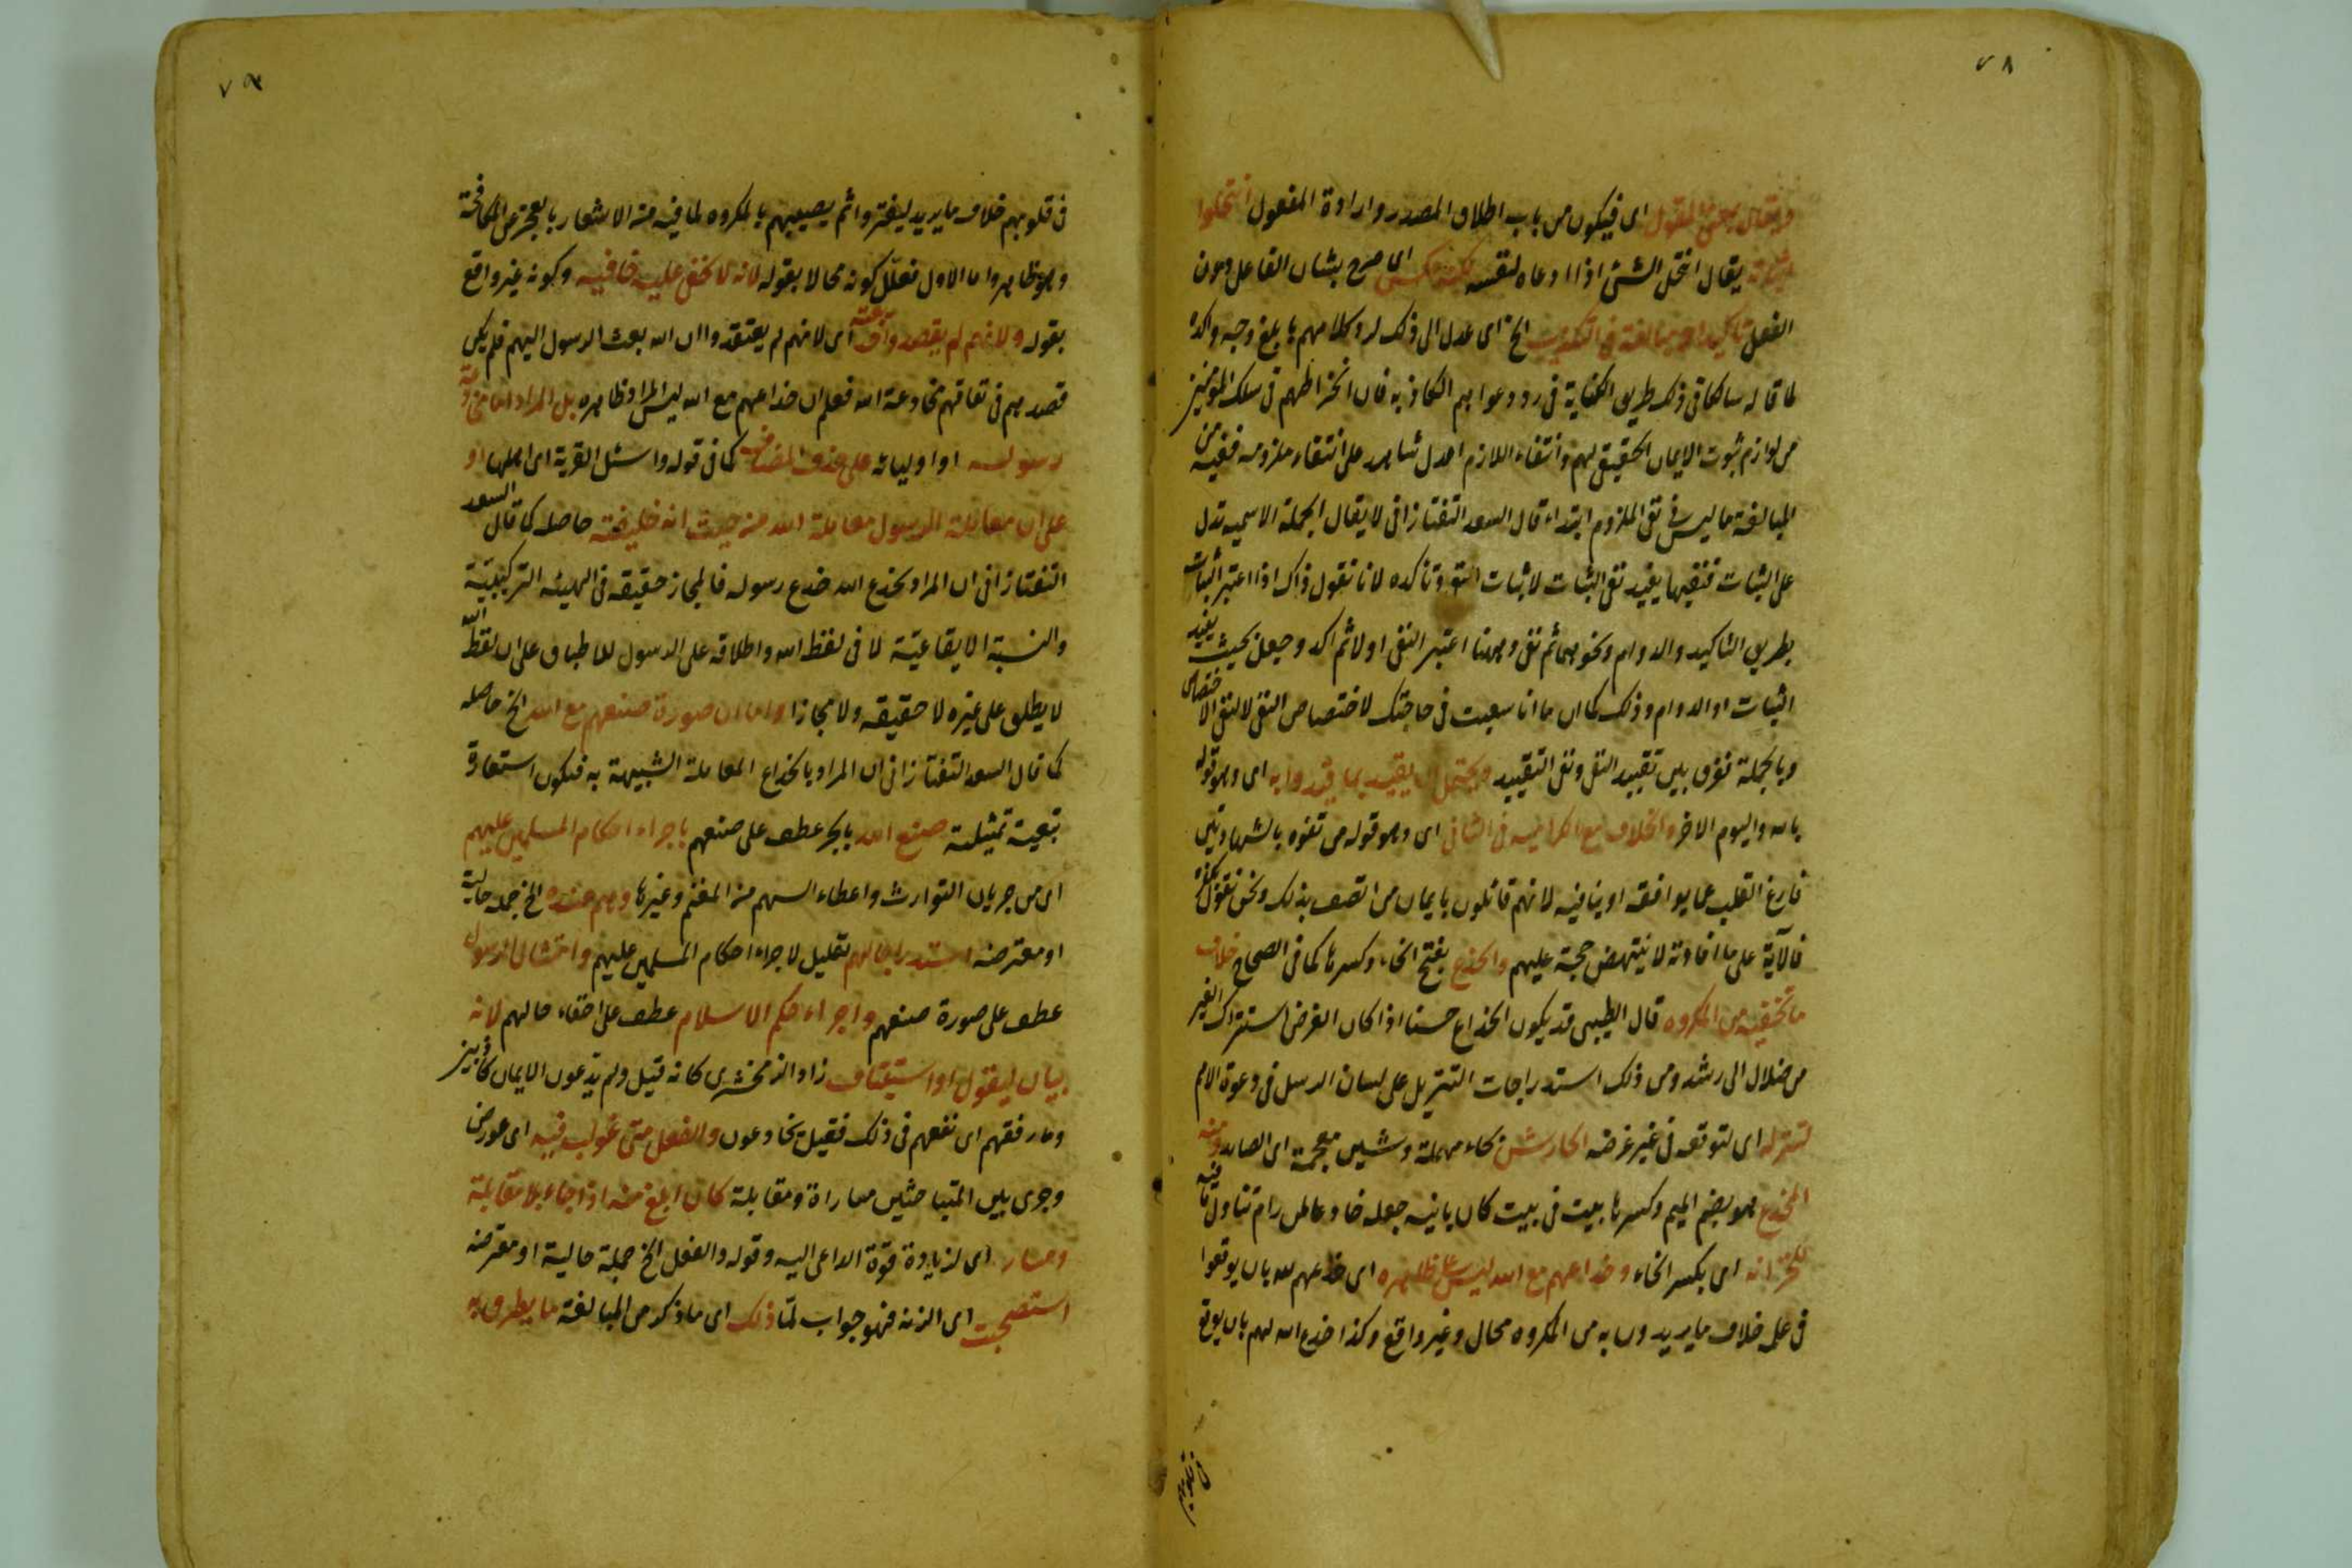 ٧٨
ويقال بمعنى المقول اى فيكون من باب اطلاق المصدر وارادة المفعول انتحلوا
اثباته يقال انتحل الشئ اذا ادعاه لنفسه لكنه عكس اى صرح بشان الفاعل دون
الفعل تاكيدا او مبالغة فى التكذيب الخ اى عدل الى ذلك لرد كلامهم بابلغ وجه واكده
لما قاله سالكا فى ذلك طريق الكناية فى رد دعواهم الكاذبه فان انخراطهم فى سلك المؤمنين
من لوازم ثبوت الايمان الحقيقى لهم وانتفاء اللازم اعدل شاهد على انتفاء ملزومه ففيه من
المبالغة ما ليس فى نفى الملزوم ابتداء قال السعد التفتازانى لا يقال الجملة الاسميه تدل
على الثبات فنفيها يفيد نفى الثبات لا ثبات النفى وتاكده لانا نقول ذاك اذا اعتبر الثبات
بطريق التاكيد والدوام ونحوهما ثم نفى وههنا اعتبر النفى اولا ثم اكد وجعل بحيث يفيد
الثبات او الدوام وذلك كما ان ما انا سعيت فى حاجتك لاختصاص النفى لا لنفى الاختصاص
وبالجملة نفرق بين تقييد النفى ونفى التقييد ويحتمل ان يقيد بما قيدوا به اى وهو قوله
بالله واليوم الاخر والخلاف مع الكراميه فى الثانى اى وهو قوله من تفوه بالشهادتين
فارغ القلب عما يوافقه او ينافيه لانهم قائلون بايمان من اتصف بذلك ونحن نقول بكفره
فالآية على ما افادته لا ينتهض حجة عليهم والخدع بفتح الخاء وكسرها كما فى الصحاح خلاف
ما تخفيه من المكروه قال الطيبى قد يكون الخداع حسنا اذا كان الغرض استنزال الغير
من ضلال الى رشد ومن ذلك استدراجات التنزيل على لسان الرسل فى دعوة الامم
لتنزله اى لتوقعه فى غير غرضه الحارش بحاء مهملة وشين معجمة اى الصايد ومنه
المخدع هو بضم الميم وكسرها بيت فى بيت كان بانيه جعله خادعا لمن رام تناول ما فيه
للخزانه اى بكسر الخاء وخداعهم مع الله ليس على ظاهره اى خدعهم لله بان يوقعوا
فى علمه خلاف ما يريدون به من المكروه محال وغير واقع وكذا خدع الله لهم بان يوقع
٧٩
فى قلوبهم خلاف ما يريد ليغتروا ثم يصيبهم بالمكروه لما فيه من الاشعار بالعجز عن المكافحة
وهو ظاهر واما الاول فعلل كونه محالا بقوله لانه لا تخفى عليه خافية وكونه غير واقع
بقوله ولانهم لم يقصدوا خديعته اى لانهم لم يعتقدوا ان الله بعث الرسول اليهم فلم يكن
قصدهم فى نفاقهم مخادعة الله فعلم ان خداعهم مع الله ليس المراد ظاهره بل المراد اما مخادعة
رسوله او اوليائه على حذف المضاف كما فى قوله واسئل القرية اى اهلها او
على ان معاملة الرسول معاملة الله من حيث انه خليفته حاصله كما قال السعد
التفتازانى ان المراد بخدع الله خدع رسوله فالمجاز حقيقه فى الهيئه التركيبية
والنسبة الايقاعية لا فى لفظ الله واطلاقه على الرسول للاطباق على ان لفظ الله
لا يطلق على غيره لا حقيقه ولا مجازا واما ان صورة صنعهم مع الله الخ حاصله
كما قال السعد التفتازانى ان المراد بالخداع المعاملة الشبيهة به فتكون استعارة
تبعية تمثيلية صنع الله بالجر عطف على صنعهم باجراء احكام المسلمين عليهم
اى من جريان التوارث واعطاء السهم من المغنم وغيرها وهم عنده الخ جملة حالية
او معترضه استدراجا لهم تعليل لاجراء احكام المسلمين عليهم وامتثال الرسول
عطف على صورة صنعهم واجراء حكم الاسلام عطف على اخفاء حالهم لانه
بيان ليقول او استيناف زاد الزمخشرى كانه قيل ولم يدعون الايمان كاذبين
وما رفقهم اى نفعهم فى ذلك فقيل يخادعون والفعل متى غولب فيه اى عورض
وجرى بين المتباحثين مباراة ومقابلة كان ابلغ منه اذا جاء بلا مقابلة
ومبار اى لزيادة قوة الداعى اليه وقوله والفعل الخ جملة حالية او معترضه
استصحبت اى الزنه فهو جواب لما ذلك اى ما ذكر من المبالغة ما يطرق به